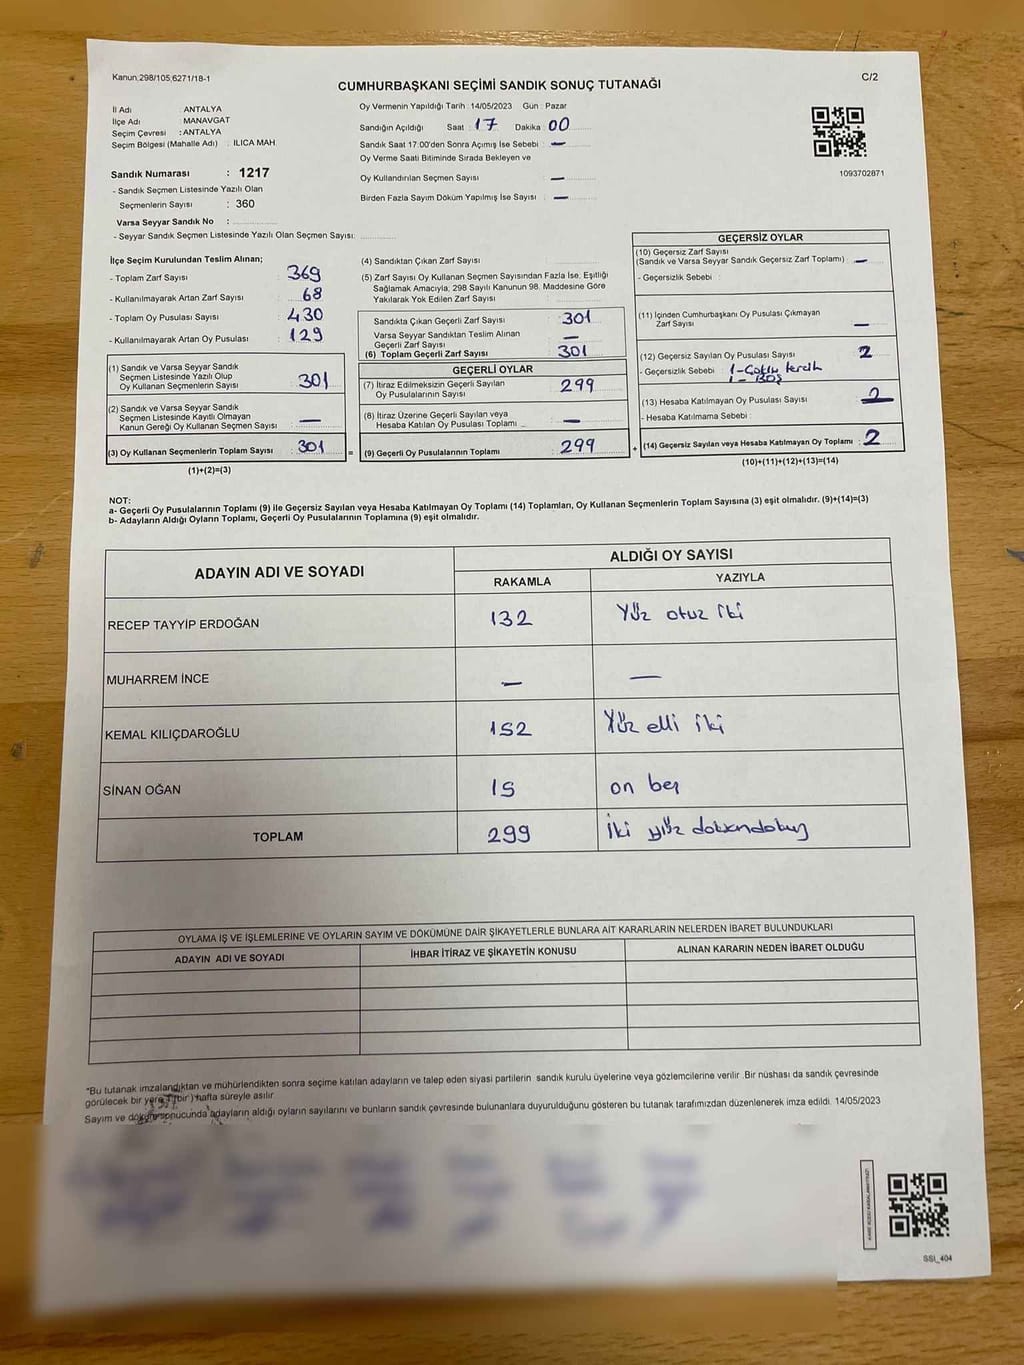 Kanun;298/105;6271/18-1
C/2
CUMHURBAŞKANI SEÇİMİ SANDIK SONUÇ TUTANAĞI
İl Adı : ANTALYA
İlçe Adı : MANAVGAT
Seçim Çevresi : ANTALYA
Seçim Bölgesi (Mahalle Adı) : ILICA MAH.
Sandık Numarası : 1217
- Sandık Seçmen Listesinde Yazılı Olan
Seçmenlerin Sayısı : 360
Varsa Seyyar Sandık No :
- Seyyar Sandık Seçmen Listesinde Yazılı Olan Seçmen Sayısı:
Oy Vermenin Yapıldığı Tarih : 14/05/2023 Gün : Pazar
Sandığın Açıldığı Saat : 17 Dakika : 00
Sandık Saat 17:00'den Sonra Açımış İse Sebebi : —
Oy Verme Saati Bitiminde Sırada Bekleyen ve
Oy Kullandırılan Seçmen Sayısı : —
Birden Fazla Sayım Döküm Yapılmış İse Sayısı : —
1093702871
İlçe Seçim Kurulundan Teslim Alınan;
- Toplam Zarf Sayısı : 369
- Kullanılmayarak Artan Zarf Sayısı : 68
- Toplam Oy Pusulası Sayısı : 430
- Kullanılmayarak Artan Oy Pusulası : 129
(1) Sandık ve Varsa Seyyar Sandık
Seçmen Listesinde Yazılı Olup
Oy Kullanan Seçmenlerin Sayısı : 301
(2) Sandık ve Varsa Seyyar Sandık
Seçmen Listesinde Kayıtlı Olmayan
Kanun Gereği Oy Kullanan Seçmen Sayısı : —
(3) Oy Kullanan Seçmenlerin Toplam Sayısı : 301
(1)+(2)=(3)
(4) Sandıktan Çıkan Zarf Sayısı :
(5) Zarf Sayısı Oy Kullanan Seçmen Sayısından Fazla İse, Eşitliği
Sağlamak Amacıyla, 298 Sayılı Kanunun 98. Maddesine Göre
Yakılarak Yok Edilen Zarf Sayısı :
Sandıkta Çıkan Geçerli Zarf Sayısı : 301
Varsa Seyyar Sandıktan Teslim Alınan
Geçerli Zarf Sayısı : —
(6) Toplam Geçerli Zarf Sayısı : 301
GEÇERLİ OYLAR
(7) İtiraz Edilmeksizin Geçerli Sayılan
Oy Pusulalarının Sayısı : 299
(8) İtiraz Üzerine Geçerli Sayılan veya
Hesaba Katılan Oy Pusulası Toplamı : —
= (9) Geçerli Oy Pusulalarının Toplamı : 299
GEÇERSİZ OYLAR
(10) Geçersiz Zarf Sayısı
(Sandık ve Varsa Seyyar Sandık Geçersiz Zarf Toplamı) : —
- Geçersizlik Sebebi :
(11) İçinden Cumhurbaşkanı Oy Pusulası Çıkmayan
Zarf Sayısı : —
(12) Geçersiz Sayılan Oy Pusulası Sayısı : 2
- Geçersizlik Sebebi : 1-Çoklu tercih
1- Boş
(13) Hesaba Katılmayan Oy Pusulası Sayısı : 2
- Hesaba Katılmama Sebebi :
+ (14) Geçersiz Sayılan veya Hesaba Katılmayan Oy Toplamı : 2
(10)+(11)+(12)+(13)=(14)
NOT:
a- Geçerli Oy Pusulalarının Toplamı (9) ile Geçersiz Sayılan veya Hesaba Katılmayan Oy Toplamı (14) Toplamları, Oy Kullanan Seçmenlerin Toplam Sayısına (3) eşit olmalıdır. (9)+(14)=(3)
b- Adayların Aldığı Oyların Toplamı, Geçerli Oy Pusulalarının Toplamına (9) eşit olmalıdır.
ADAYIN ADI VE SOYADI
ALDIĞI OY SAYISI
RAKAMLA YAZIYLA
RECEP TAYYİP ERDOĞAN 132 Yüz otuz iki
MUHARREM İNCE — —
KEMAL KILIÇDAROĞLU 152 Yüz elli iki
SİNAN OĞAN 15 on beş
TOPLAM 299 İki yüz doksandokuz
OYLAMA İŞ VE İŞLEMLERİNE VE OYLARIN SAYIM VE DÖKÜMÜNE DAİR ŞİKAYETLERLE BUNLARA AİT KARARLARIN NELERDEN İBARET BULUNDUKLARI
ADAYIN ADI VE SOYADI İHBAR İTİRAZ VE ŞİKAYETİN KONUSU ALINAN KARARIN NEDEN İBARET OLDUĞU
*Bu tutanak imzalandıktan ve mühürlendikten sonra seçime katılan adayların ve talep eden siyasi partilerin sandık kurulu üyelerine veya gözlemcilerine verilir .Bir nüshası da sandık çevresinde
görülecek bir yere 1 (bir ) hafta süreyle asılır.
Sayım ve döküm sonucunda adayların aldığı oyların sayılarını ve bunların sandık çevresinde bulunanlara duyurulduğunu gösteren bu tutanak tarafımızdan düzenlenerek imza edildi. 14/05/2023
SSI_404